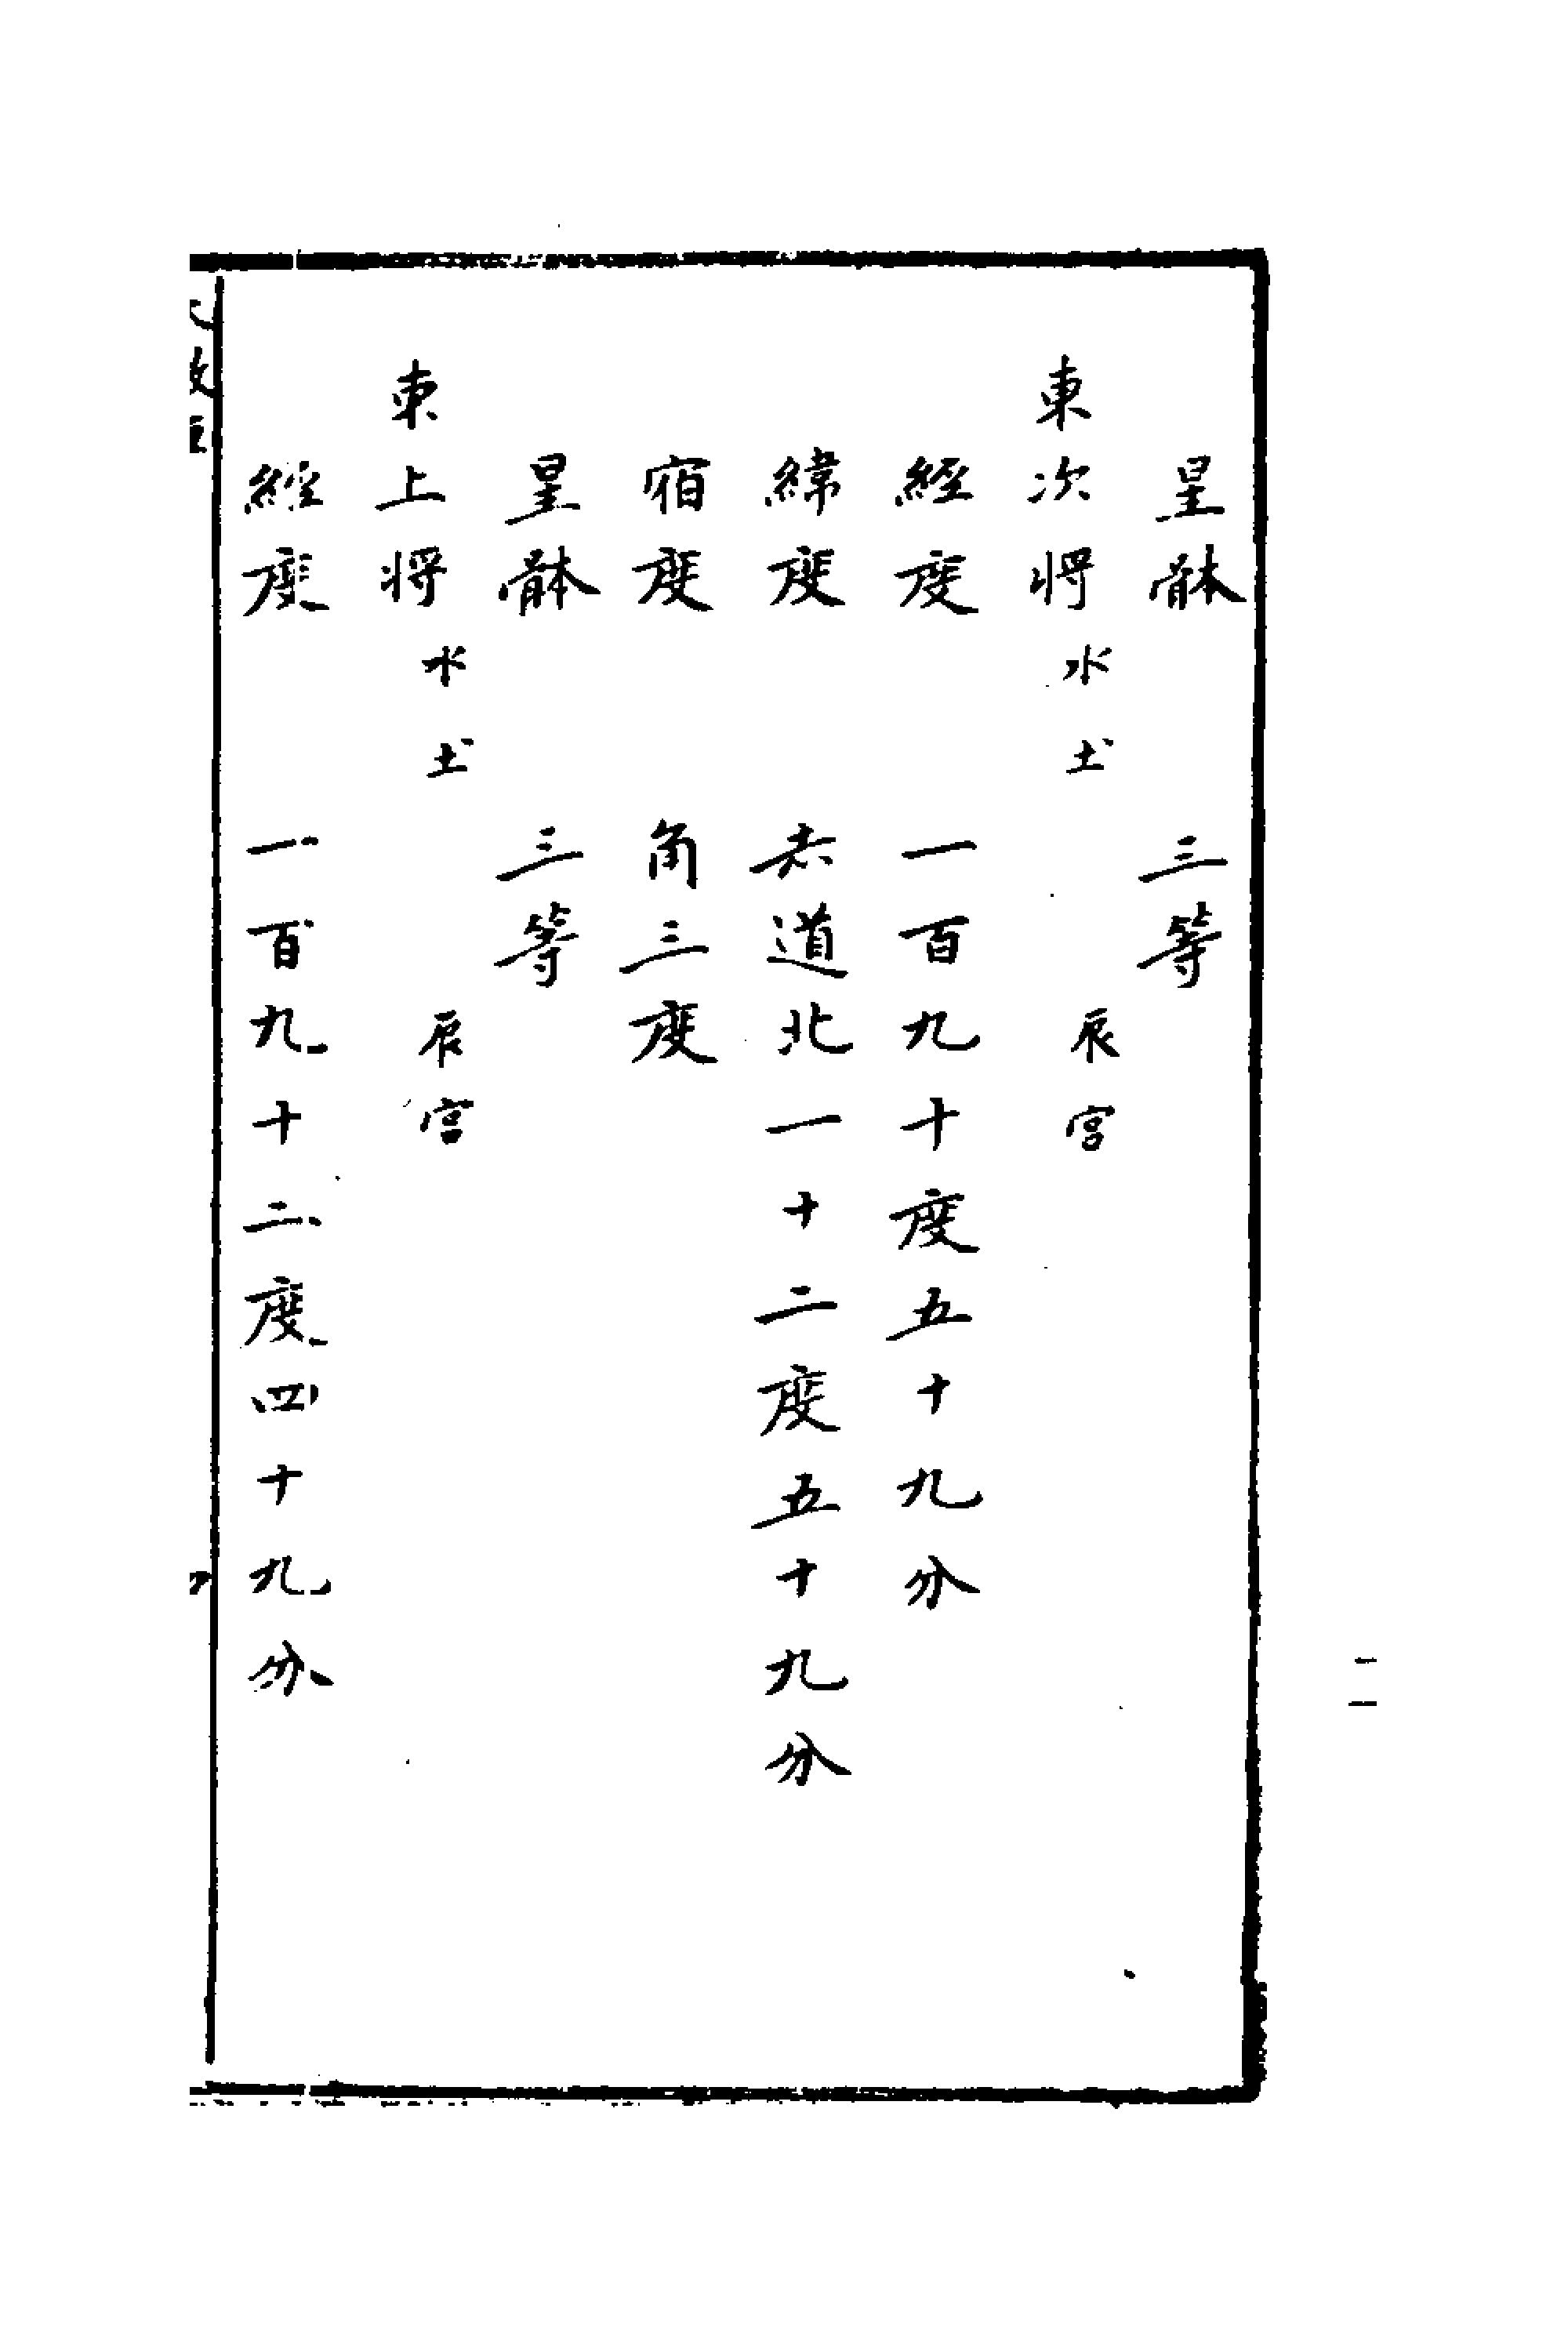 星骵　三等
東次將　水土　辰宮
經度　一百九十度五十九分
緯度　赤道北一十二度五十九分
宿度　角三度
星骵　三等
東上將　水土　辰宮
經度　一百九十二度四十九分
二一